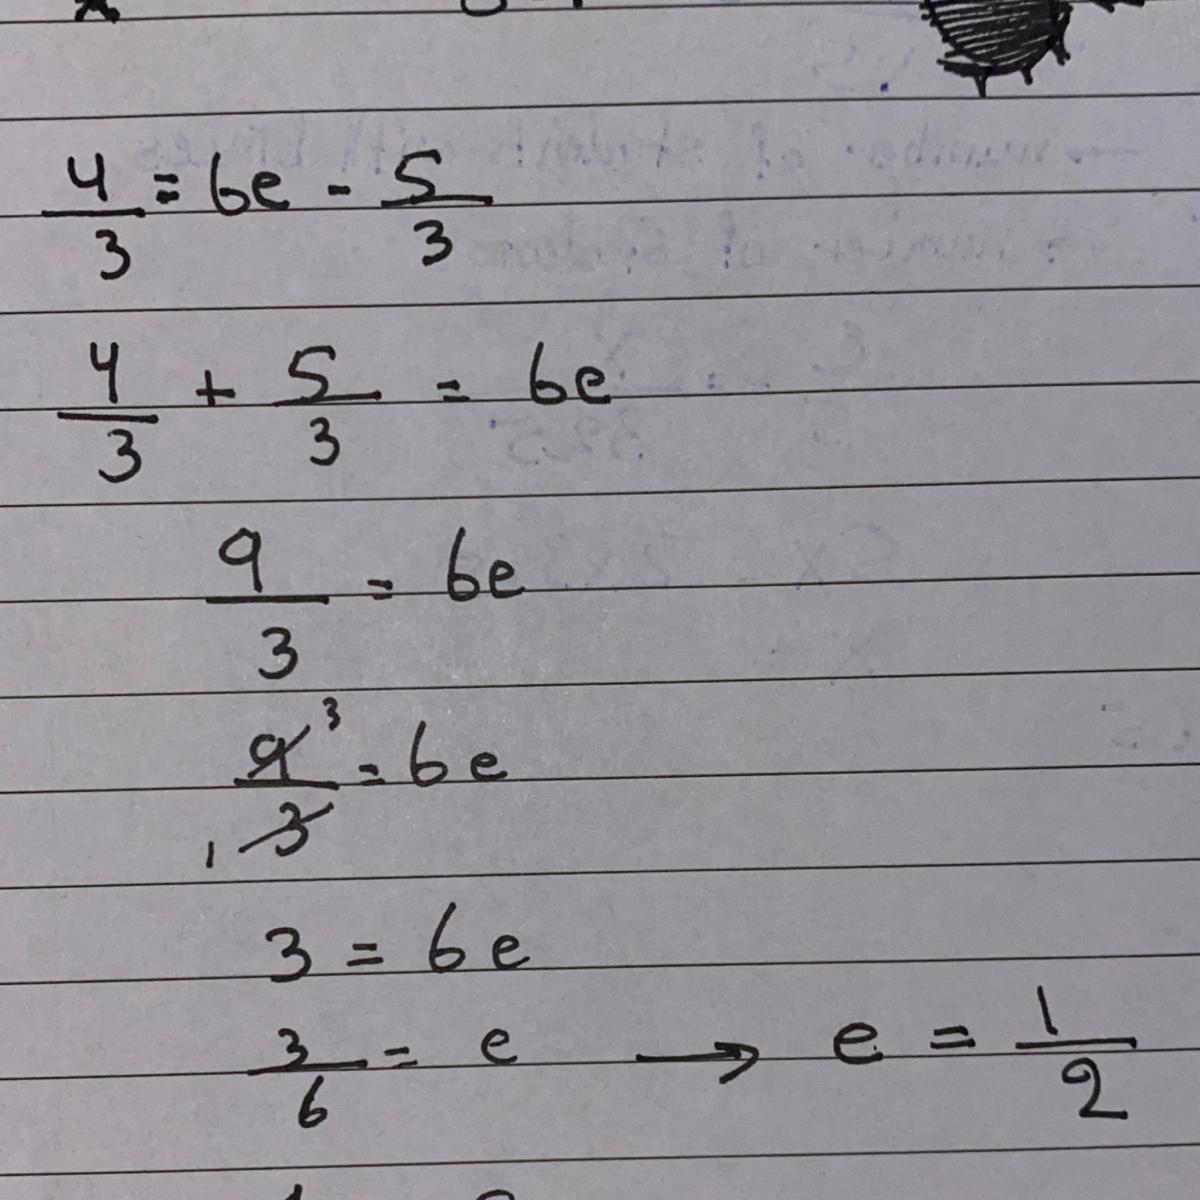 4/3 = 6e - 5/3
4/3 + 5/3 = 6e
9/3 = 6e
9 3/1 3 = 6e
3 = 6e
3/6 = e → e = 1/2